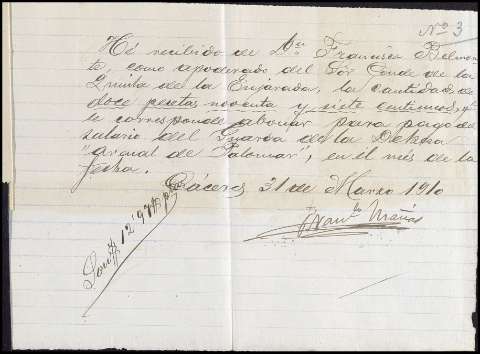 Nº 3
He recibido de Dn. Francisco Belmon
te, como apoderado del Sor Conde de la
Quinta de la Enjarada, la cantidad de
doce pesetas noventa y siete centimos, q
le corresponde abonar para pago del
salario del Guarda de la Dehesa
"Arenal de Palomar", en el mes de la
fecha.
Cáceres 31 de Marzo 1910
Son 12'97 ptas